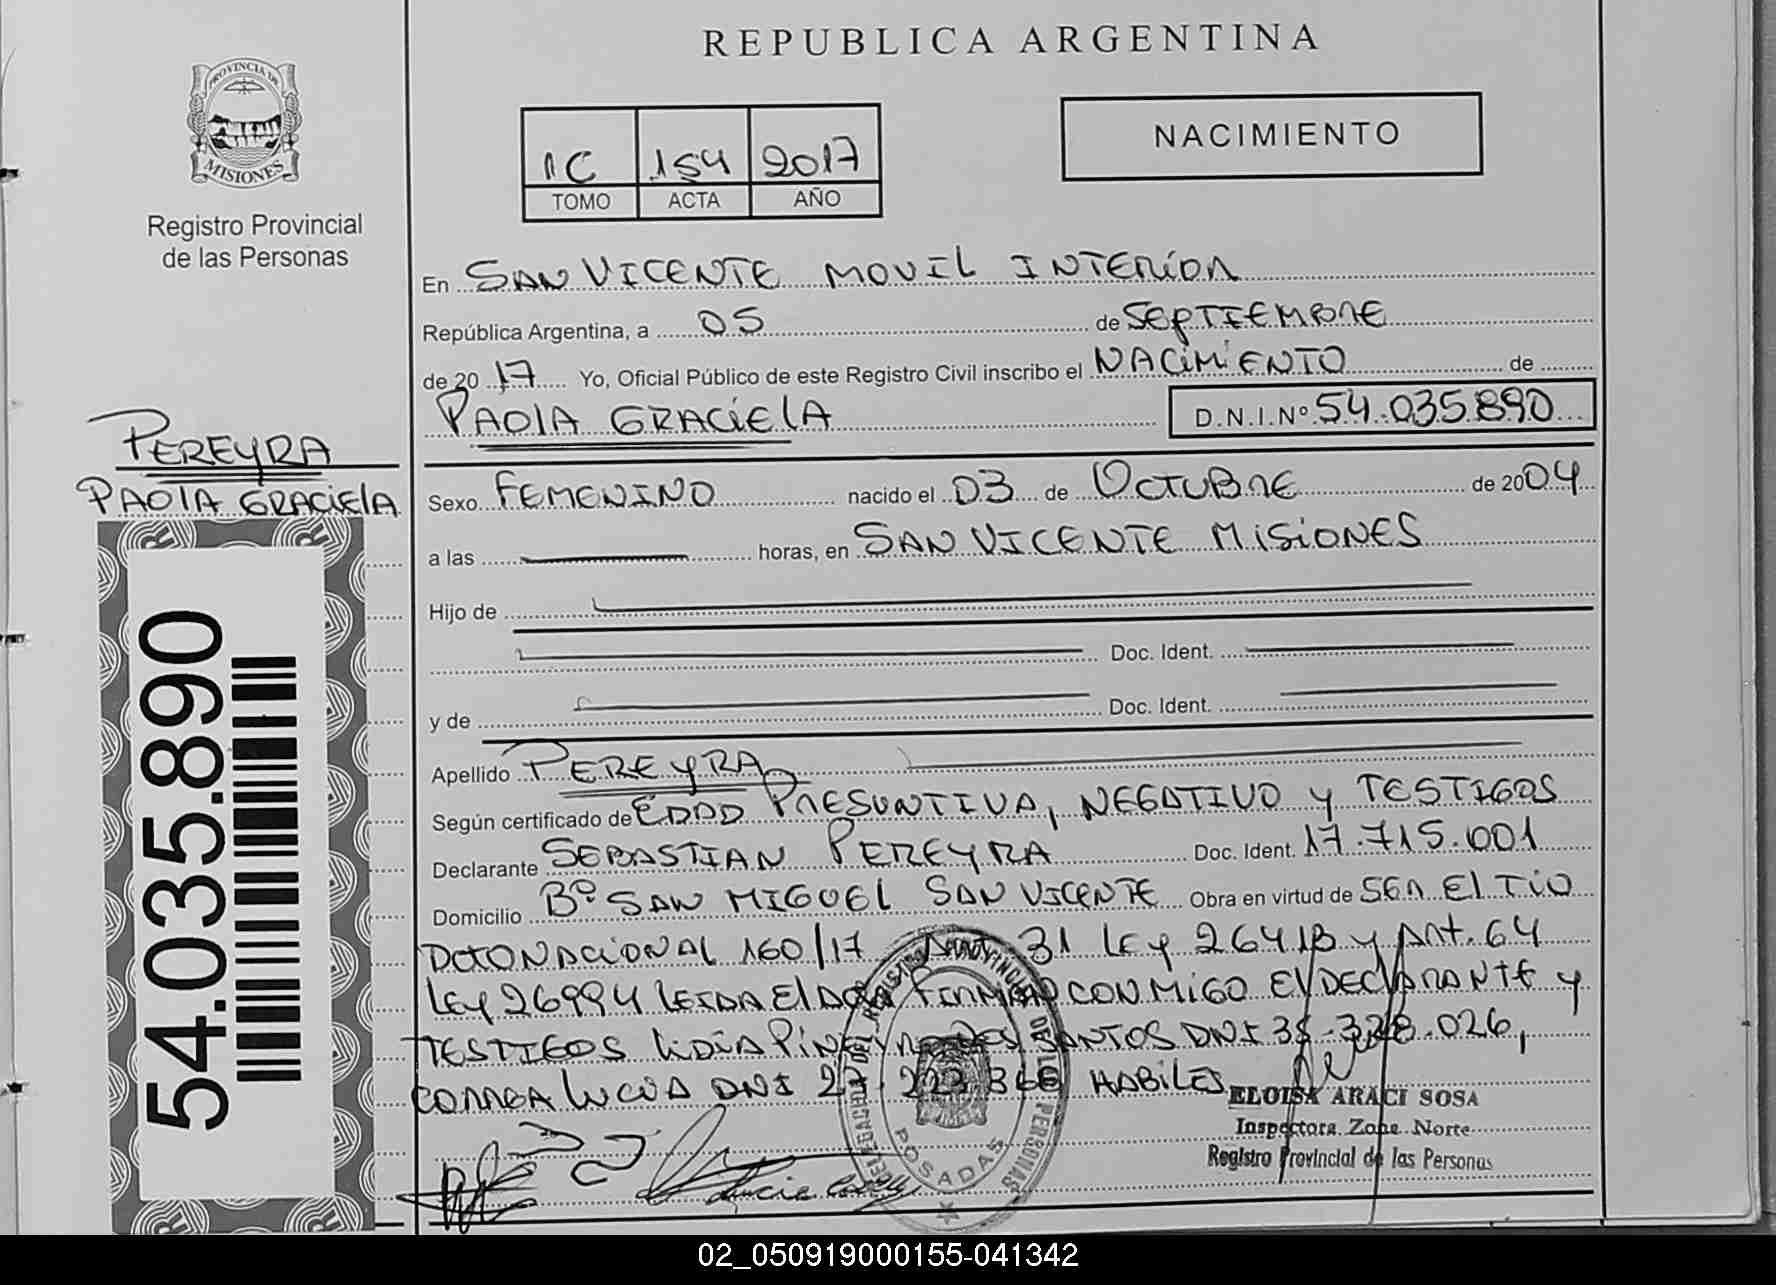 REPUBLICA ARGENTINA
PROVINCIA DE
MISIONES
Registro Provincial
de las Personas
1C 154 2017
TOMO ACTA AÑO
NACIMIENTO
En SAN VICENTE MOVIL INTERIOR
República Argentina, a 05 de SEPTIEMBRE
de 2017 Yo, Oficial Público de este Registro Civil inscribo el NACIMIENTO de
PAOLA GRACIELA D.N.I.Nº 54.035.890
PEREYRA
PAOLA GRACIELA
54.035.890
Sexo FEMENINO nacido el 03 de OCTUBRE de 2004
a las horas, en SAN VICENTE MISIONES
Hijo de
Doc. Ident.
y de Doc. Ident.
Apellido PEREYRA
Según certificado de EDAD PRESUNTIVA, NEGATIVO y TESTIGOS
Declarante SEBASTIAN PEREYRA Doc. Ident. 17.715.001
Domicilio Bº SAN MIGUEL SAN VICENTE Obra en virtud de SER EL TIO
DCTO NACIONAL 160/17 31 LEY 26413 y ART. 64
LEY 26994 LEIDA EL ACTA FIRMAN CONMIGO EL DECLARANTE y
TESTIGOS LIDIA SANTOS DNI 026,
CORREA LUCIA DNI HABILES
ELOISA ARACI SOSA
Inspectora Zona Norte
Registro Provincial de las Personas
POSADAS
02_050919000155-041342